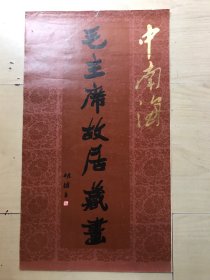 中南海
毛主席故居藏畫